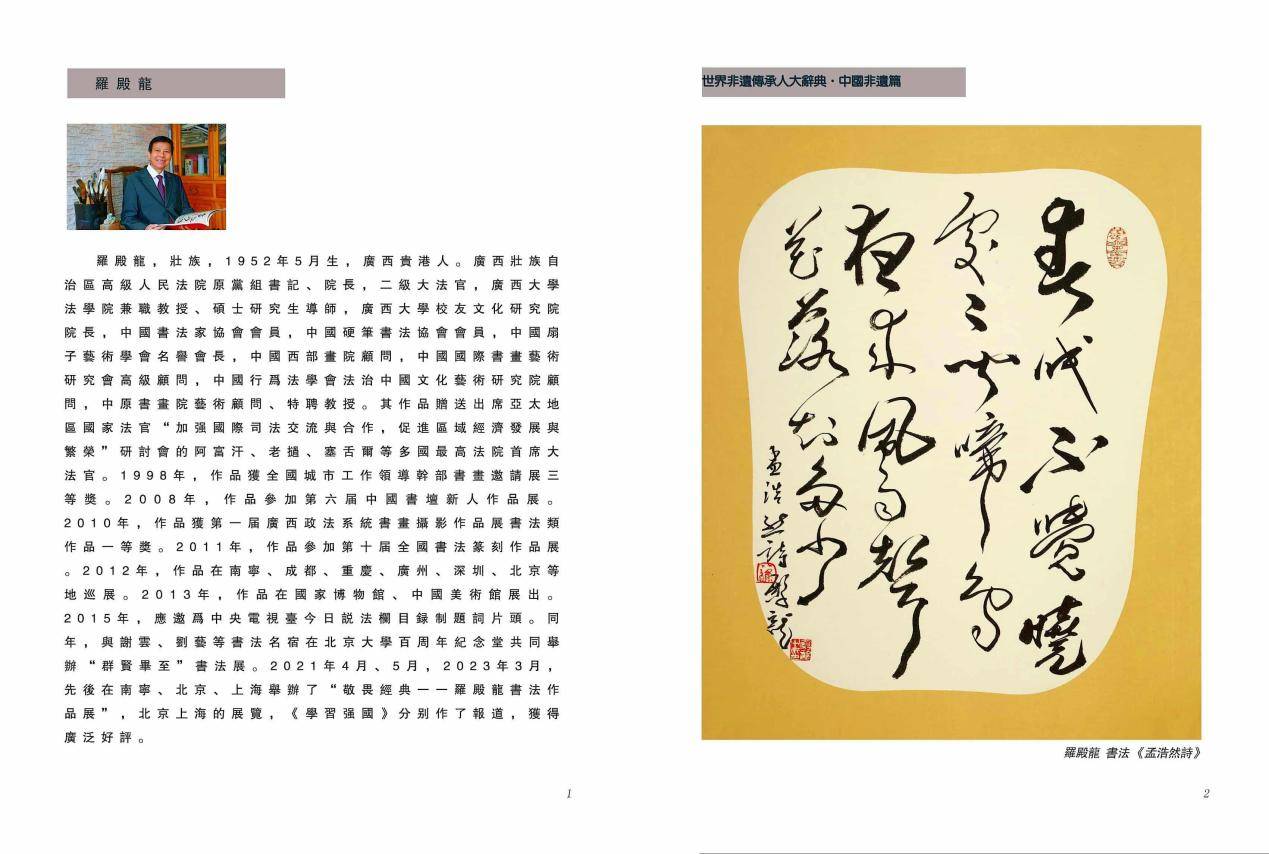 羅殿龍
羅殿龍，壯族，1952年5月生，廣西貴港人。廣西壯族自
治區高級人民法院原黨組書記、院長，二級大法官，廣西大學
法學院兼職教授、碩士研究生導師，廣西大學校友文化研究院
院長，中國書法家協會會員，中國硬筆書法協會會員，中國扇
子藝術學會名譽會長，中國西部畫院顧問，中國國際書畫藝術
研究會高級顧問，中國行爲法學會法治中國文化藝術研究院顧
問，中原書畫院藝術顧問、特聘教授。其作品贈送出席亞太地
區國家法官“加强國際司法交流與合作，促進區域經濟發展與
繁榮”研討會的阿富汗、老撾、塞舌爾等多國最高法院首席大
法官。1998年，作品獲全國城市工作領導幹部書畫邀請展三
等獎。2008年，作品參加第六届中國書壇新人作品展。
2010年，作品獲第一届廣西政法系統書畫攝影作品展書法類
作品一等獎。2011年，作品參加第十届全國書法篆刻作品展
。2012年，作品在南寧、成都、重慶、廣州、深圳、北京等
地巡展。2013年，作品在國家博物館、中國美術館展出。
2015年，應邀爲中央電視臺今日説法欄目録制題詞片頭。同
年，與謝雲、劉藝等書法名宿在北京大學百周年紀念堂共同舉
辦“群賢畢至”書法展。2021年4月、5月，2023年3月，
先後在南寧、北京、上海舉辦了“敬畏經典一一羅殿龍書法作
品展”，北京上海的展覽，《學習强國》分别作了報道，獲得
廣泛好評。
1
世界非遺傳承人大辭典·中國非遺篇
春眠不覺曉
處二聞啼鳥
夜来風雨聲
花落知多少
孟浩然詩殿龍
羅殿龍 書法《孟浩然詩》
2